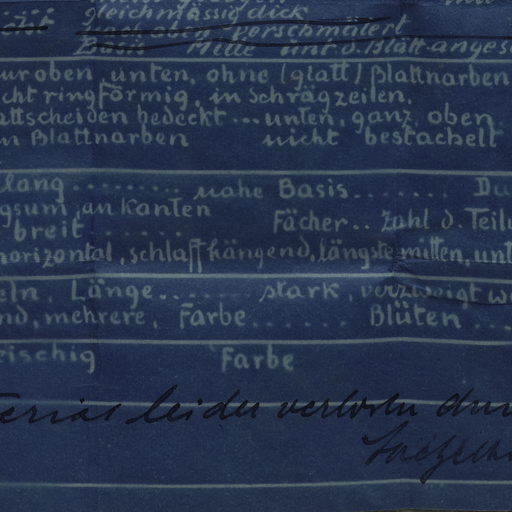 gleichmässig dick
nach oben verschmälert
Basis Mitte unt. d. Blatt-anges
ur oben, unten, ohne (glatt) Blattnarben
cht ringförmig, in Schrägzeilen,
attscheiden bedeckt ... unten, ganz, oben
n Blattnarben nicht bestachelt
lang ........ nahe Basis ........ Du
gsum, an Kanten Fächer .. Zahl d. Teilu
breit ......
horizontal, schlaff hängend, längste mitten, unt
eln, Länge ....... stark, verzweigt w
nd, mehrere, Farbe ...... Blüten ...
eischig Farbe
terias leider verloren dur